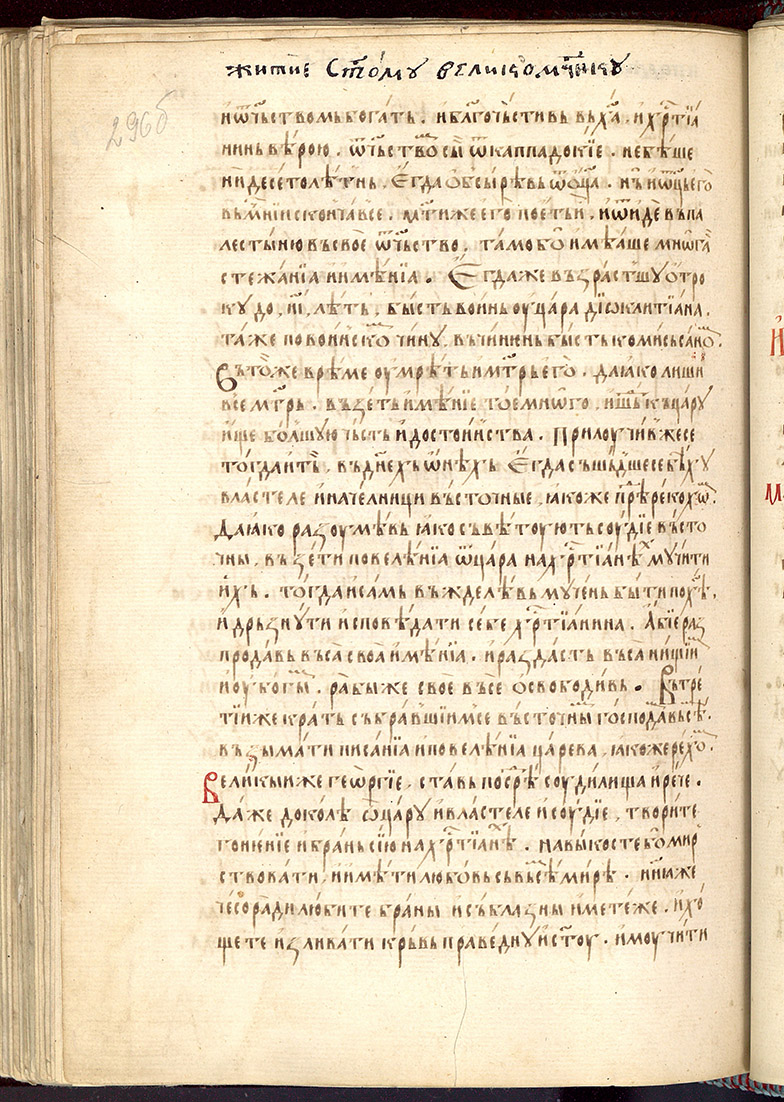 житїе Ст҃омꙋ великом҃никꙋ
296б
и ѡⷱ҇ьствомь богать. и бл҃гочьстивь бѣхꙋ. и хрⷭ҇тїа
нинь вѣрою. ѡⷱ҇ьствѡ сы ѿ каппадокїе. не бѣше
ни десетолѣтнь. Егда ѻбсырѣвь ѿ ѻц҃а. нь и ѡц҃ь его
вь мⷱ҇нїи сконча все. мт҃и же его поеть и, и ѿиде вь па
лестыню вь свое ѡⷱ҇ьство. тамо бо имѣаше мнѡга
стежанїа и имѣнїа. Егда же вьзрастшꙋ ѻтро
кꙋ до, и҃і, лѣть, бысть воинь оу цара дїѡклитїана.
таже по воинскомꙋ чинꙋ, вьчинень бысть комись саномь.
Вь тоже врѣме оумрѣть и мт҃рь его. да ıако лиши
в се мт҃рь. вьзеть имѣнїе тое много, и шⷣь кь царꙋ
ище болшꙋю чьсть и достоинства. Прилоучи вже се
тогда ить, вь днехь ѡнѣхь Егда сьшьдше се бѣхꙋ
властеле и начелници вьсточные, ıакоже прѣⷣрекохѡⷨ.
Да ıако разоумѣвь ıако сьвѣтоують соудїе вьсто
чны, вьзети повелѣнїа ѿ цара на хрⷭ҇тїанѣⷯ мꙋчити
ихь. тогда и самь вьжделѣвь мꙋчень быти по хⷭ҇ѣ,
и дрьзнꙋти исповѣдати себе хрⷭ҇тїанина. Абїе раз
продавь вьса своа имѣнїа. и раздасть вьса нищїиⷨ
и оубогыⷨ. рабы же свое вьсе ѻсвободивь. Вь тре
тїи же крать сьбравшїимсе вьсточныⷨ господаⷬ вьсѣⷨ.
вьзымати писанїа и повелѣнїа царева, ıакоже рехоⷨ.
Великыи же геѡргїе, ставь посрⷣѣ соудилища и рече.
Даже доколѣ ѡ цару и властеле и соудїе, творите
гонѣнїе и брань сїю на хрⷭ҇тїанѣ. навыкосте бо мир
ствовати, и имѣти любовь сь вьсѣⷨ мирѣ. нинаже
чесо ради любите браны и сьблазны и метеже. и хо
щете изливати крьвь праведнꙋ и ст҃оу. и моучити